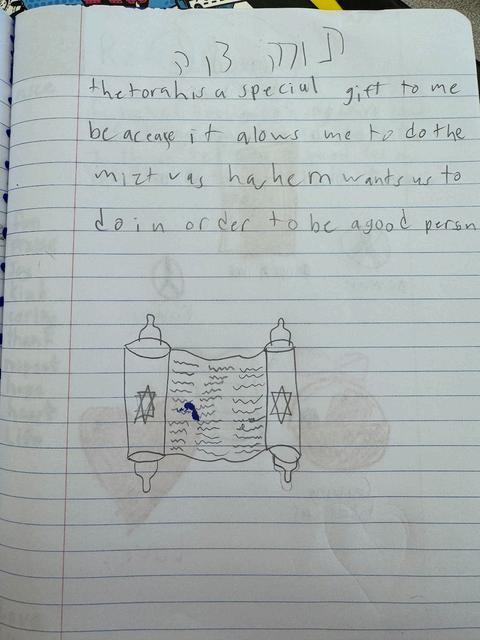 תורה צוה
thetorah is a special gift to me
be aceage it alows me to do the
miztvas hahem wants us to
do in order to be a good person